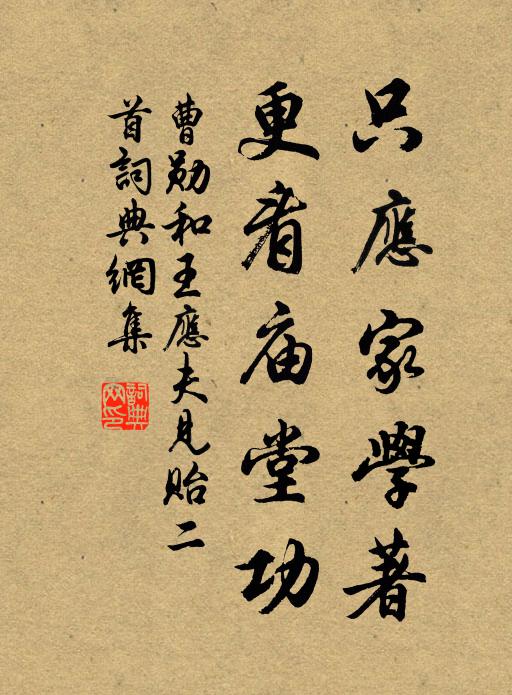 只應家學著
更看庙堂功
曹勛和王應夫見貽二
首詞典網集
詞典网印